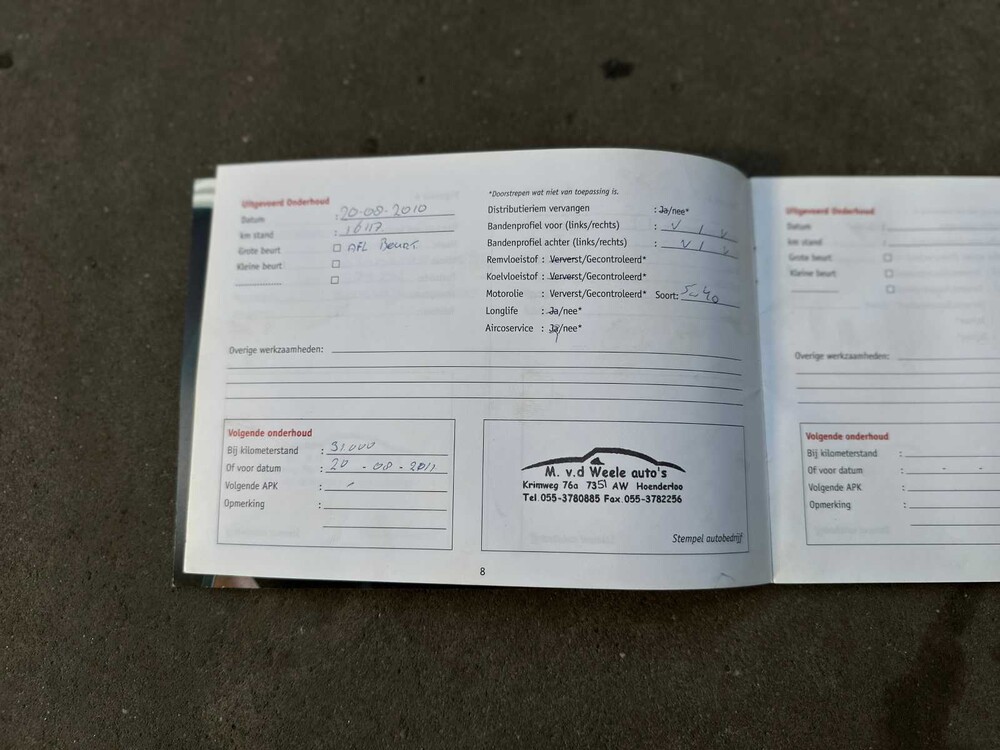 Uitgevoerd Onderhoud
Datum : 20-08-2010
km stand : 16117
Grote beurt AFL BEURT
Kleine beurt
*Doorstrepen wat niet van toepassing is.
Distributieriem vervangen : Ja/nee*
Bandenprofiel voor (links/rechts) : V / V
Bandenprofiel achter (links/rechts) : V / V
Remvloeistof : Ververst/Gecontroleerd*
Koelvloeistof : Ververst/Gecontroleerd*
Motorolie : Ververst/Gecontroleerd* Soort: 5W40
Longlife : Ja/nee*
Aircoservice : Ja/nee*
Overige werkzaamheden:
Volgende onderhoud
Bij kilometerstand : 31000
Of voor datum : 20 - 08 - 2011
Volgende APK :
Opmerking :
M. v.d Weele auto's
Krimweg 76a 7351 AW Hoenderloo
Tel.055-3780885 Fax.055-3782256
Stempel autobedrijf
8
Uitgevoerd Onderhoud
Datum
km stand
Grote beurt
Kleine beurt
Overige werkzaamheden:
Volgende onderhoud
Bij kilometerstand :
Of voor datum : - -
Volgende APK :
Opmerking :